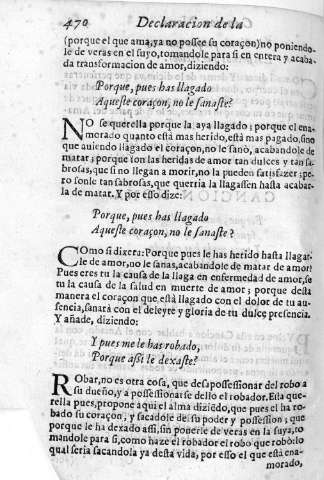 470 Declaracion de la
(porque el que ama, ya no possee su coraçon) no poniendo-
le de veras en el suyo, tomandole para si en entera y acaba-
da transformacion de amor, diziendo:
Porque, pues has llagado
Aqueste coraçon, no le sanaste?
NO se querella porque la aya llagado; porque el ena-
morado quanto està mas herido, està mas pagado, sino
que auiendo llagado el coraçon, no le sanò, acabandole de
matar; porque son las heridas de amor tan dulces y tan sa-
brosas, que si no llegan a morir, no la pueden satisfazer; pe-
ro sonle tan sabrosas, que querria la llagassen hasta acabar-
la de matar. Y por esso dize:
Porque, pues has llagado
Aqueste coraçon, no le sanaste?
COmo si dixera: Porque pues le has herido hasta llagar-
le de amor, no le sanas, acabandole de matar de amor?
Pues eres tu la causa de la llaga en enfermedad de amor, se
tu la causa de la salud en muerte de amor; porque desta
manera el coraçon que està llagado con el dolor de tu au-
sencia, sanarà con el deleyte y gloria de tu dulce presencia.
Y añade, diziendo:
Y pues me le has robado,
Porque assi le dexaste?
RObar, no es otra cosa, que desapossessionar del robo a
su dueño, y a possessionarse dello el robador. Esta que-
rella pues, propone aqui el alma diziẽdo, que pues el ha ro-
bado su coraçon, y sacadole de su poder y possession; que
porque le ha dexado assi, sin ponerle de veras en la suya, to-
mandole para si, como haze el robador el robo que robò: lo
qual seria sacandola ya desta vida, por esso el que està ena-
morado,